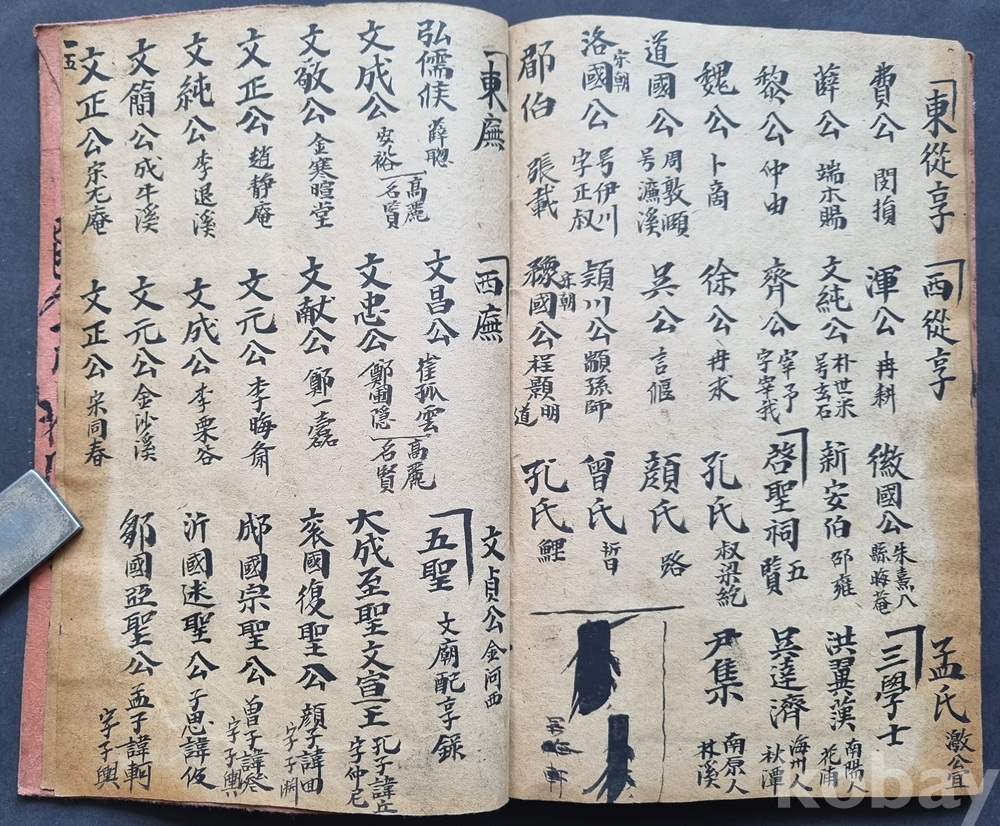 東從享 西從享 孟氏 激公宜
費公 閔損 渾公 冉耕 徽國公 朱熹 八縣 晦菴 三學士
薛公 端木賜 文純公 朴世采 号玄石 新安伯 邵雍 洪翼漢 南陽人 花甫
黎公 仲由 齊公 宰予 字宰我 啓聖祠 五賢 吳達濟 海州人 秋潭
魏公 卜商 徐公 冉求 孔氏 叔梁紇 尹集 南原人 林溪
道國公 周敦頤 号濂溪 吳公 言偃 顔氏 路
洛國公 宋朝 号伊川 字正叔 穎川公 顓孫師 曾氏 晢
郿伯 張載 豫國公 宋朝 程顥 明道 孔氏 鯉
東廡 西廡 文貞公 金河西
弘儒侯 薛聰 文昌公 崔孤雲 五聖 文廟配享錄
文成公 安裕 高麗名賢 文忠公 鄭圃隱 高麗名賢 大成至聖文宣王 孔子諱丘 字仲尼
文敬公 金寒暄堂 文献公 鄭一蠹 衮國復聖公 顔子諱回 字子淵
文正公 趙靜庵 文元公 李晦齋 郕國宗聖公 曾子諱參 字子輿
文純公 李退溪 文成公 李栗谷 沂國述聖公 子思諱伋
文簡公 成牛溪 文元公 金沙溪 鄒國亞聖公 孟子諱軻 字子輿
文正公 宋尤庵 文正公 宋同春